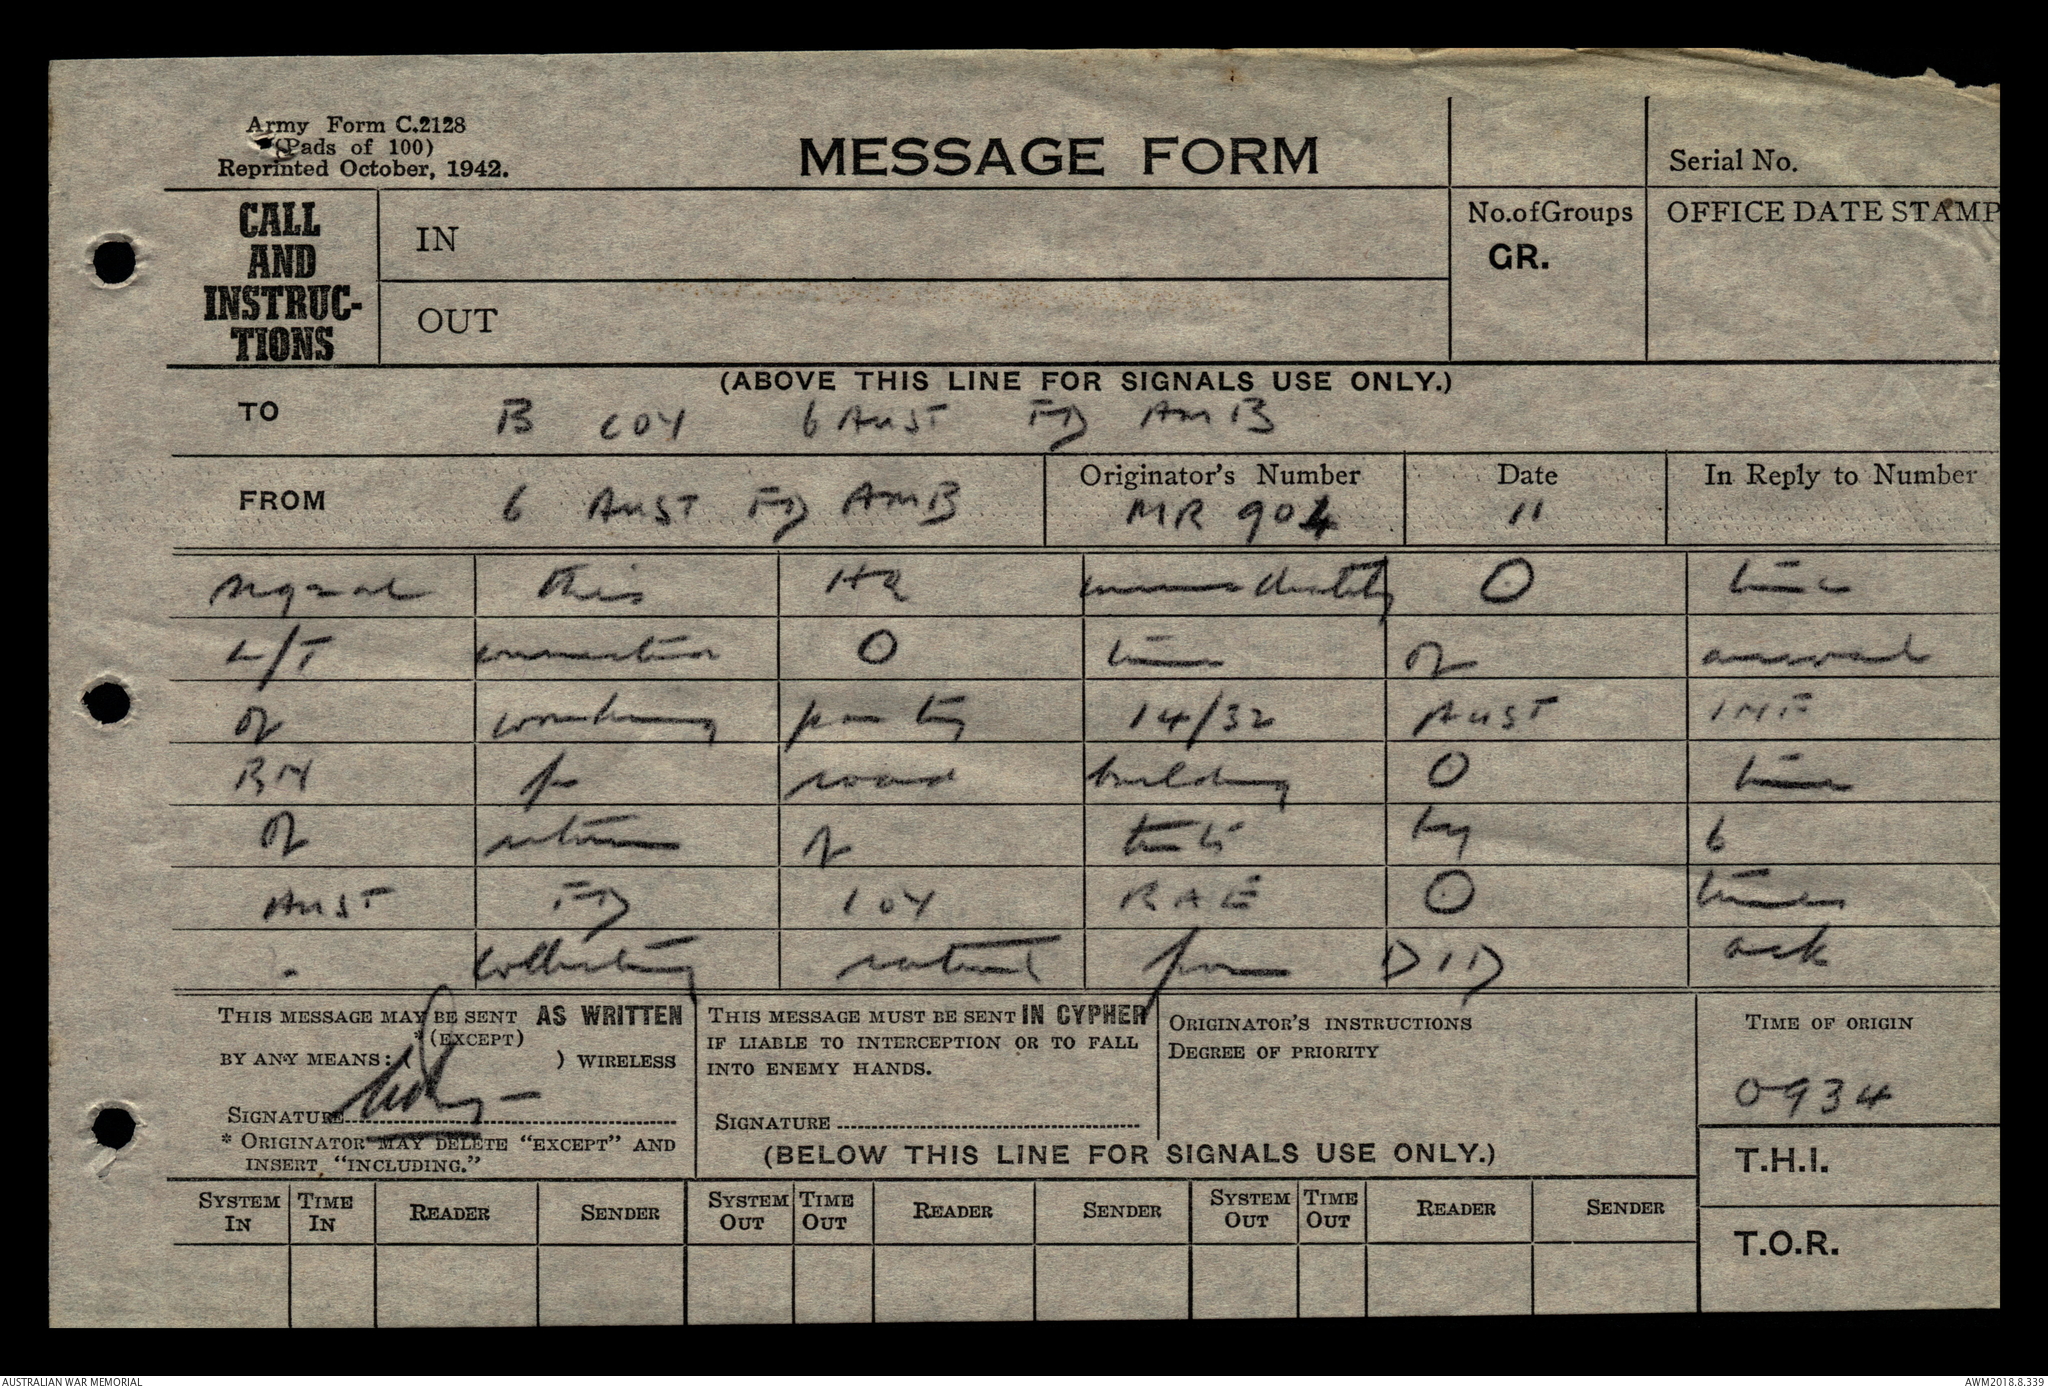 Army Form C.2128
(Pads of 100)
Reprinted October, 1942.
MESSAGE FORM
Serial No.
CALL AND INSTRUC-TIONS
IN
OUT
No. of Groups
GR.
OFFICE DATE STAMP
(ABOVE THIS LINE FOR SIGNALS USE ONLY.)
TO B COY 6 AUST FD AMB
FROM 6 AUST FD AMB
Originator's Number MR 904
Date 11
In Reply to Number
signal this HQ immediately O time
L/T connection O time of arrival
of working party 14/32 AUST INF
BN for road building O time
of return of tents by 6
AUST FD COY RAE O time
. collecting rations from DID ack
THIS MESSAGE MAY BE SENT AS WRITTEN
*(EXCEPT)
BY ANY MEANS: ( ) WIRELESS
SIGNATURE
* ORIGINATOR MAY DELETE "EXCEPT" AND
INSERT "INCLUDING."
THIS MESSAGE MUST BE SENT IN CYPHER
IF LIABLE TO INTERCEPTION OR TO FALL
INTO ENEMY HANDS.
SIGNATURE
ORIGINATOR'S INSTRUCTIONS
DEGREE OF PRIORITY
TIME OF ORIGIN
0934
T.H.I.
T.O.R.
(BELOW THIS LINE FOR SIGNALS USE ONLY.)
SYSTEM IN TIME IN READER SENDER SYSTEM OUT TIME OUT READER SENDER SYSTEM OUT TIME OUT READER SENDER
AUSTRALIAN WAR MEMORIAL
AWM2018.8.339